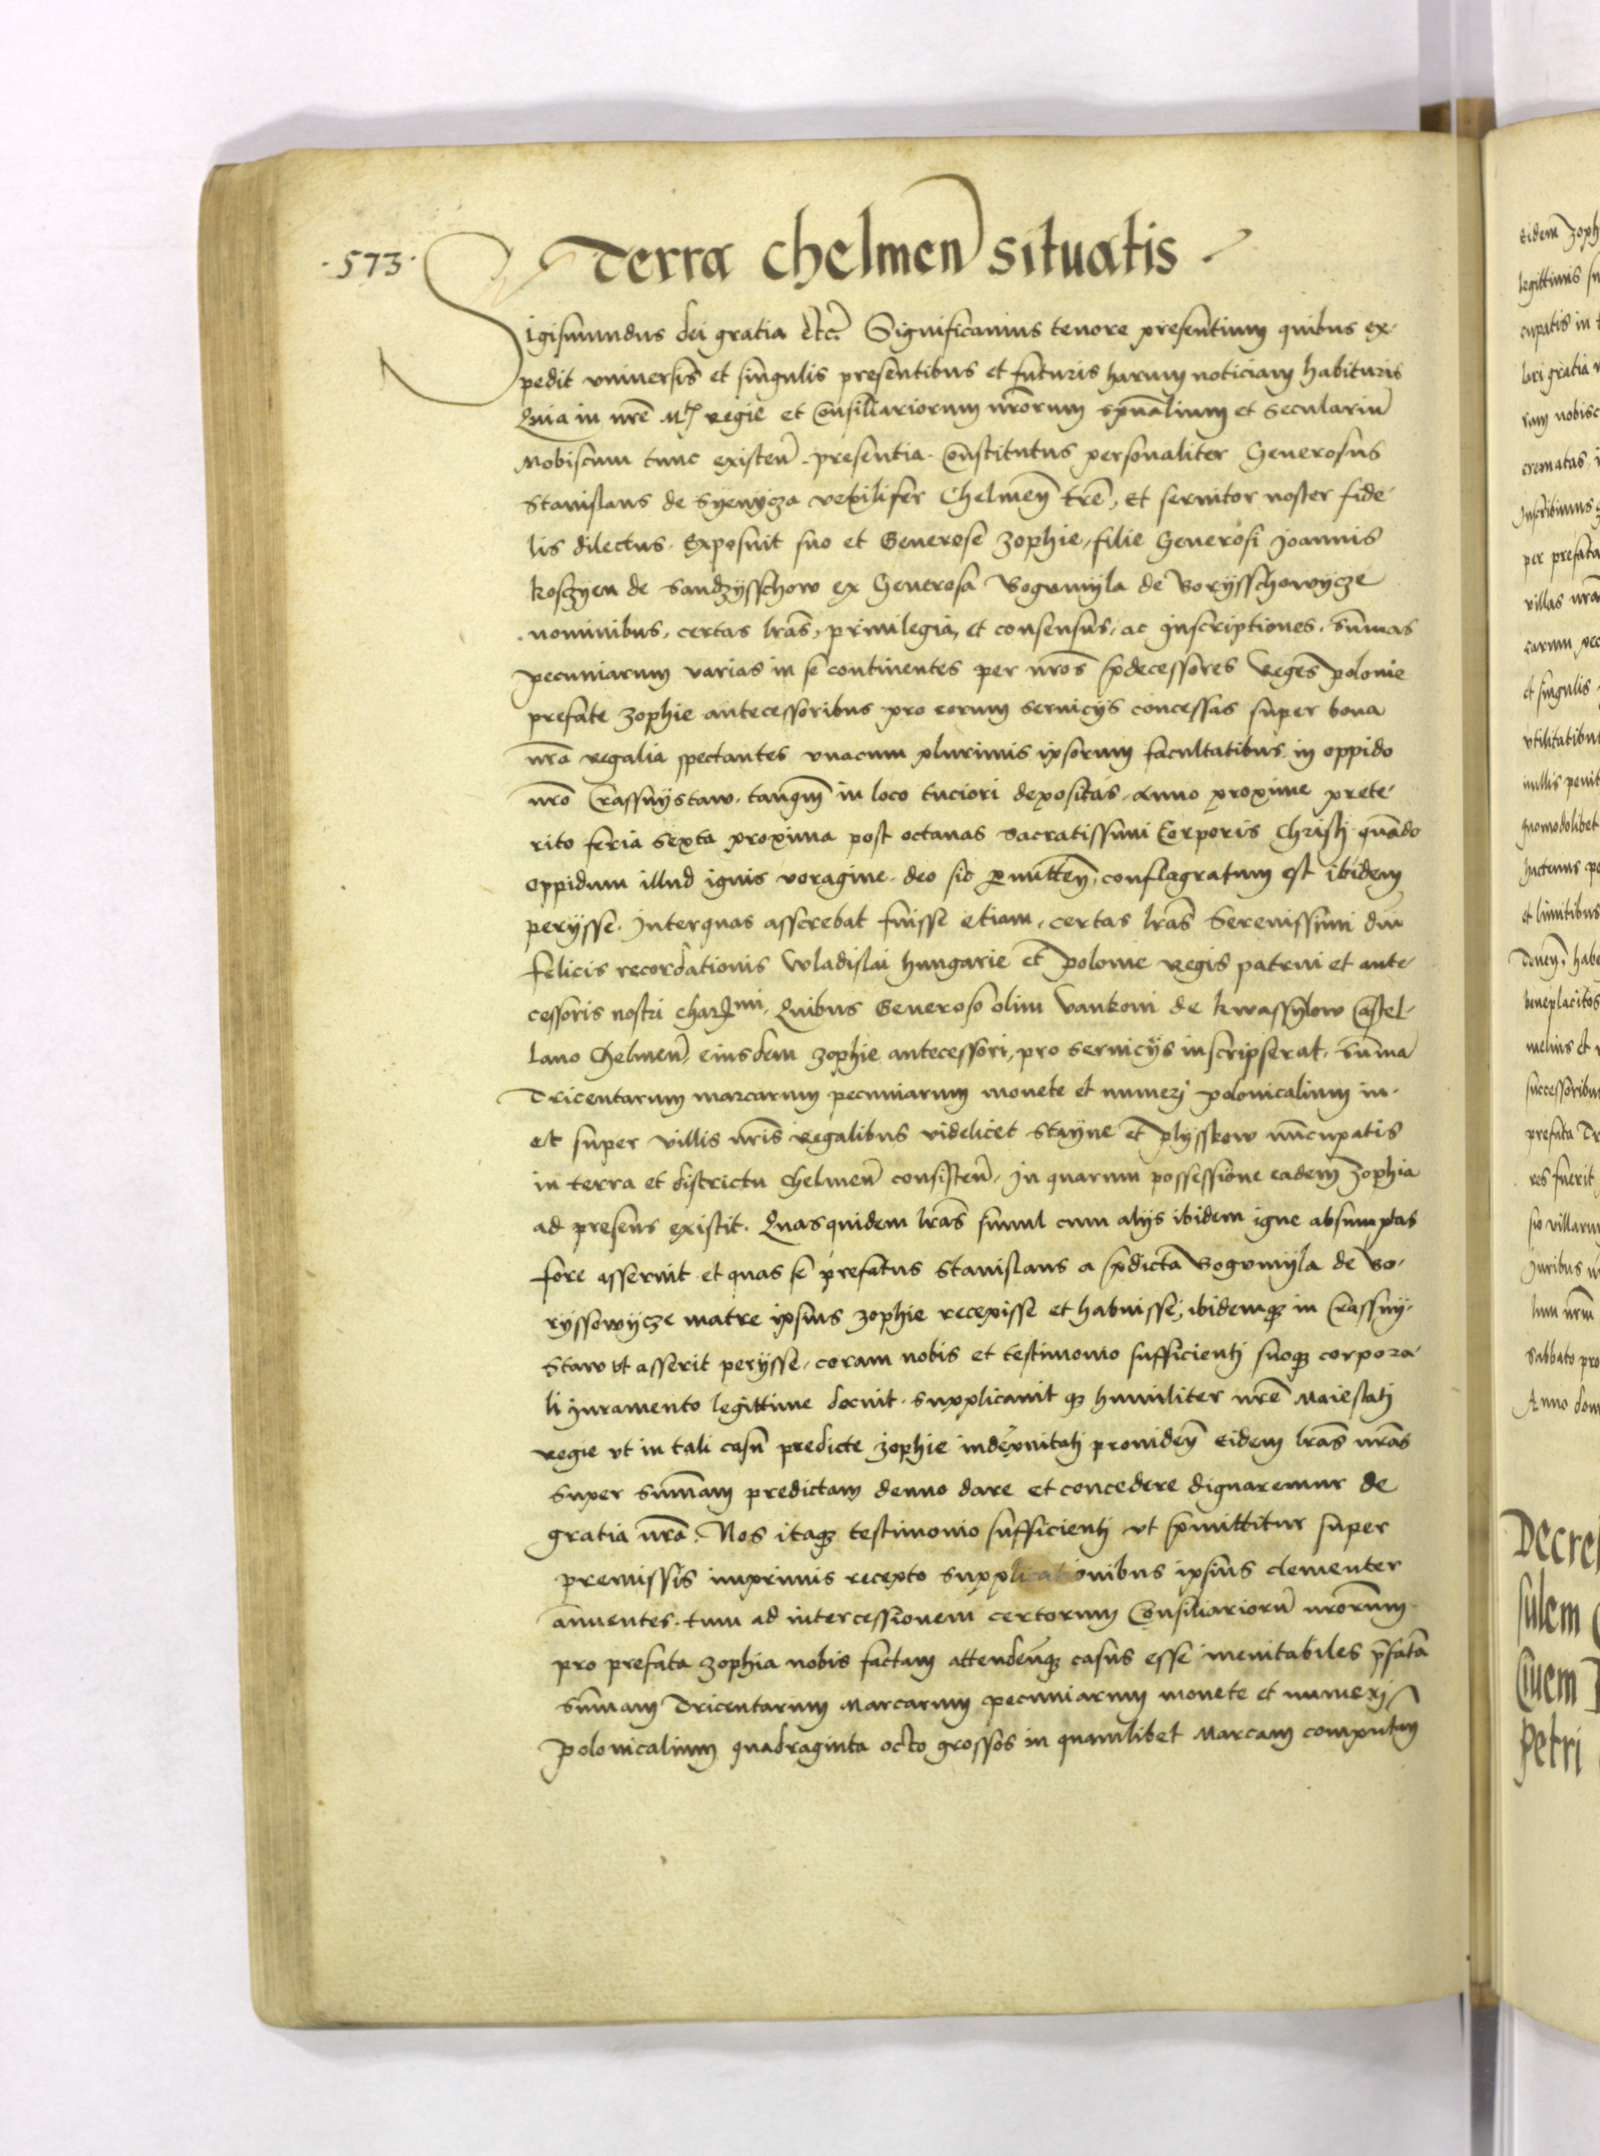 ·573·
Terra Chelmen situatis
Sigismundus dei gratia etc. Significamus tenore presentium quibus ex-
pedit universis et singulis presentibus et futuris harum noticiam habituris
Quia in nrē Mtis regie et Consiliariorum nrōrum spūalium et Seculariū
Nobiscum tunc existeñ. presentia. Constitutus personaliter Generosus
Stanislaus de Syenycza vexilifer Chelmeñ trē, et servitor noster fide-
lis dilectus. Exposuit suo et Generose Zophie, filie Generosi Joannis
Koschyen de Sandzysschow ex Generosa Bogumyla de Borysschowycze
nominibus, certas lrās, privilegia, et consensus, ac inscriptiones. Summas
pecuniarum varias in se continentes per nrōs predecessores Reges polonie
prefate Zophie antecessoribus pro eorum servicijs concessas super bona
nrā regalia spectantes unacum plurimis ipsorum facultatibus in oppido
nrō Crassnystaw. tanqm̄ in loco tuciori depositas. Anno proxime prete-
rito feria Sexta proxima post octavas Sacratissimi Corporis Christi quādo
oppidum illud ignis voragine. deo sic permitteñ, conflagratum est ibidem
perysse. Interquas asserebat fuisse etiam, certas lrās Serenissimi dni
felicis recordationis Wladislai hungarie et polonie regis patrui et ante-
cessoris nostri charmi. Quibus Generoso olim Vankoni de Kwassylow Castel-
lano Chelmeñ, eiusdem Zophie antecessori, pro servicijs inscripserat. Summa
Tricentarum marcarum pecuniarum monete et numerj polonicalium in.
et super villis nrīs regalibus videlicet Stayne et plysskow nūcupatis
in terra et districtu Chelmeñ consisteñ. In quarum possessione eadem Zophia
ad presens existit. Quasquidem lrās simul cum alijs ibidem igne absumptas
fore asseruit et quas se prefatus Stanislaus a predicta Bogumyla de Bo-
ryssowycze matre ipsius Zophie recepisse et habuisse, ibidemq̄ in Crassny-
staw ut asserit perysse, coram nobis et testimonio sufficientj suoq̄ corpora-
li Juramento legittime docuit. Supplicavit q̄ humiliter nrē Maiestatj
regie ut in tali casu predicte Zophie indēpnitatj provideñ eidem lrās nrās
super summam predictam denuo dare et concedere dignaremur de
gratia nrā. Nos itaq̄ testimonio sufficientj ut premittitur super
premissis imprimis recepto supplicationibus ipsius clementer
annuentes. tum ad intercessionem certorum Consiliariorū nrōrum
pro prefata Zophia nobis factam attendeñq̄ casus esse inevitabiles p̄fata
summam Tricentarum Marcarum pecuniarum monete et numerj
polonicalium quadraginta octo grossos in quamlibet Marcam computañ